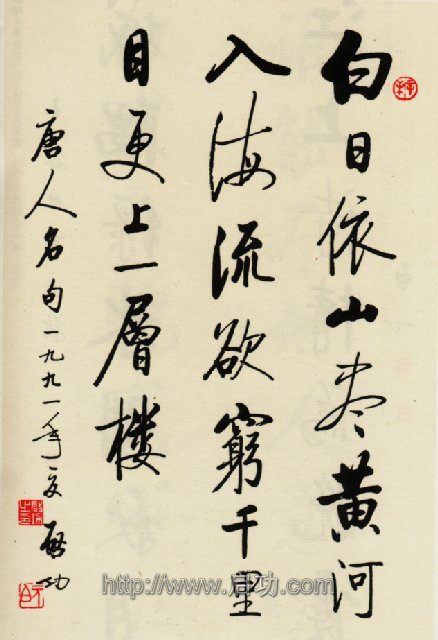 白日依山尽黄河
入海流欲窮千里
目更上一層楼
唐人名句一九九一年夏 启功
http://www.启功.com